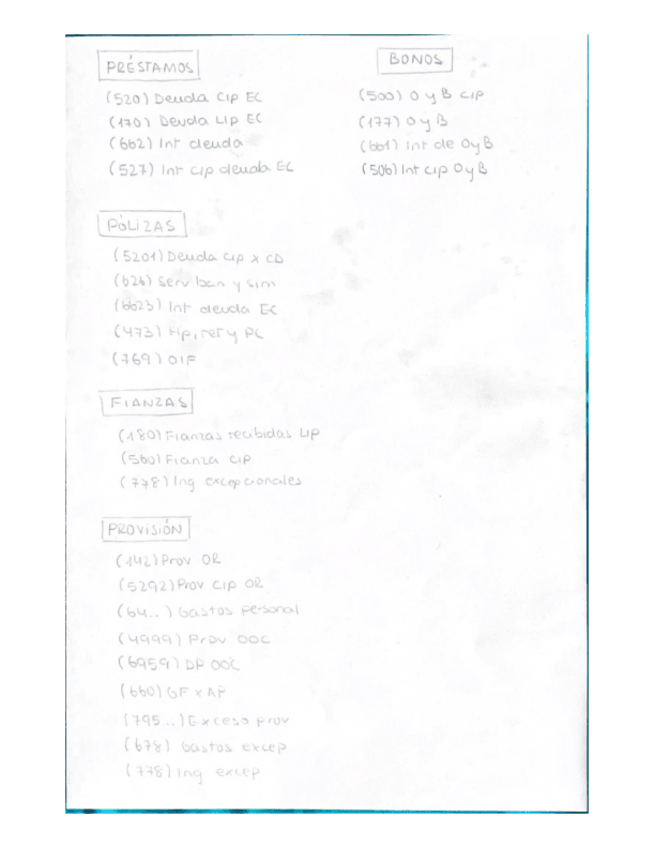 PRÉSTAMOS
(520) Deuda C/p EC
(170) Deuda L/p EC
(662) Int deuda
(527) Int c/p deuda EC
BONOS
(500) O y B c/p
(177) O y B
(661) Int de O y B
(506) Int c/p O y B
PÓLIZAS
(5201) Deuda c/p x CD
(626) Serv ban y sim
(6623) Int deuda EC
(473) Hp, ret y PC
(769) OIF
FIANZAS
(180) Fianzas recibidas L/P
(560) Fianza c/P
(778) Ing excepcionales
PROVISIÓN
(142) Prov OR
(5292) Prov c/p OR
(64..) Gastos personal
(4999) Prov OOC
(6959) DP OOC
(660) GF x AP
(795..) Exceso prov
(678) Gastos excep
(778) Ing excep